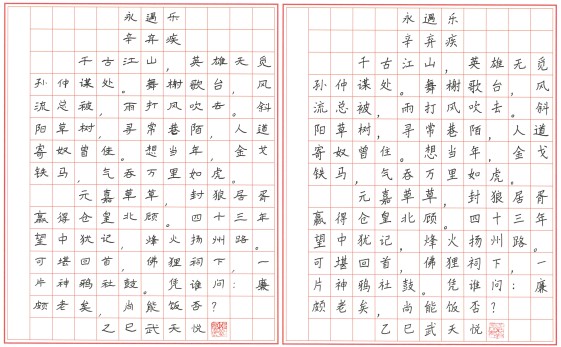 永遇乐
辛弃疾
千古江山，英雄无觅
孙仲谋处。舞榭歌台，风
流总被，雨打风吹去。斜
阳草树，寻常巷陌，人道
寄奴曾住。想当年，金戈
铁马，气吞万里如虎。
元嘉草草，封狼居胥
赢得仓皇北顾。四十三年
望中犹记，烽火扬州路。
可堪回首，佛狸祠下，一
片神鸦社鼓。凭谁问：廉
颇老矣，尚能饭否？
乙巳武天悦
永遇乐
辛弃疾
千古江山，英雄无觅
孙仲谋处。舞榭歌台，风
流总被，雨打风吹去。斜
阳草树，寻常巷陌，人道
寄奴曾住。想当年，金戈
铁马，气吞万里如虎。
元嘉草草，封狼居胥
赢得仓皇北顾。四十三年
望中犹记，烽火扬州路。
可堪回首，佛狸祠下，一
片神鸦社鼓。凭谁问：廉
颇老矣，尚能饭否？
乙巳武天悦